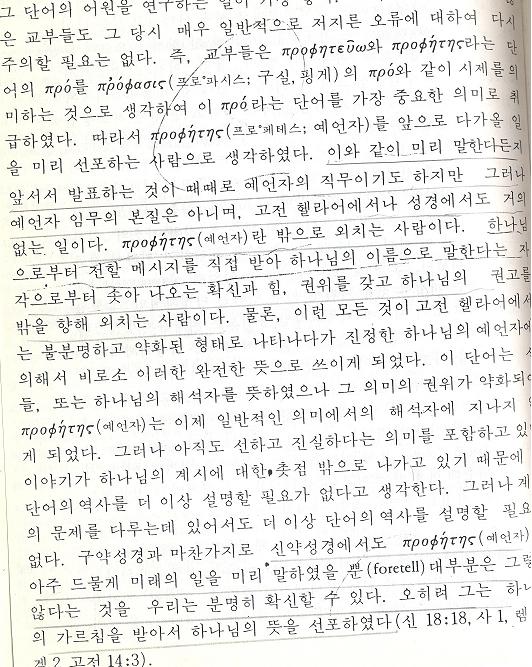 그 단어의 어원을 연구하는 일이 가장
은 교부들도 그 당시 매우 일반적으로 저지른 오류에 대하여 다시
주의할 필요는 없다. 즉, 교부들은 προφητεῦω와 προφήτης라는 단
어의 πρό를 πρόφασις(프로파시스; 구실, 핑계)의 πρό와 같이 시제를 의
미하는 것으로 생각하여 이 πρό라는 단어를 가장 중요한 의미로 취
급하였다. 따라서 προφήτης(프로페테스; 예언자)를 앞으로 다가올 일
을 미리 선포하는 사람으로 생각하였다. 이와 같이 미리 말한다든지
앞서서 발표하는 것이 때때로 예언자의 직무이기도 하지만 그러나
예언자 임무의 본질은 아니며, 고전 헬라어에서나 성경에서도 거의
없는 일이다. προφήτης(예언자)란 밖으로 외치는 사람이다. 하나님
으로부터 전할 메시지를 직접 받아 하나님의 이름으로 말한다는 자
각으로부터 솟아 나오는 확신과 힘, 권위를 갖고 하나님의 권고를
밖을 향해 외치는 사람이다. 물론, 이런 모든 것이 고전 헬라어에서
는 불분명하고 약화된 형태로 나타나다가 진정한 하나님의 예언자에
의해서 비로소 이러한 완전한 뜻으로 쓰이게 되었다. 이 단어는
들, 또는 하나님의 해석자를 뜻하였으나 그 의미의 권위가 약화되어
προφήτης(예언자)는 이제 일반적인 의미에서의 해석자에 지나지
게 되었다. 그러나 아직도 선하고 진실하다는 의미를 포함하고 있
이야기가 하나님의 계시에 대한 촛점 밖으로 나가고 있기 때문에
단어의 역사를 더 이상 설명할 필요가 없다고 생각한다. 그러나 계
의 문제를 다루는데 있어서도 더 이상 단어의 역사를 설명할 필요
없다. 구약성경과 마찬가지로 신약성경에서도 προφήτης(예언자)
아주 드물게 미래의 일을 미리 말하였을 뿐(foretell) 대부분은 그렇
않다는 것을 우리는 분명히 확신할 수 있다. 오히려 그는 하나
의 가르침을 받아서 하나님의 뜻을 선포하였다(신 18:18, 사 1, 렘
겔 2, 고전 14:3).